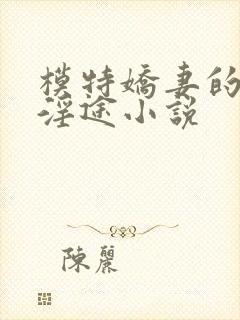 模特嬌妻的
淫途小說
陳麗